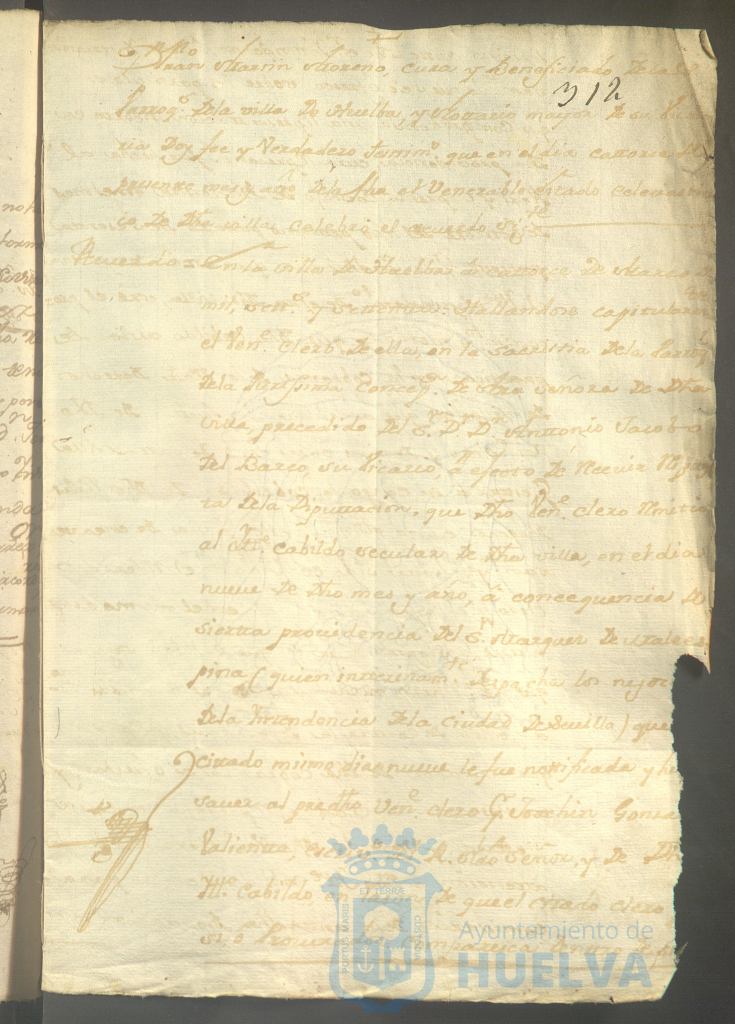 312
Juan Martin Moreno, Cura y Beneficiado de la
Parroq.l de la villa de Huelba, y Notario mayor de su Vica
ria Doy fee y Verdadero testim.o que en el dia catorze del
presente mes y año de la fha el Venerable estado eclesiasti
co de dha villa celebró el acuerdo sig.te
Acuerdo = En la villa de Huelba a catorce de Marzo de
mil, set.s y setenta. Hallandose capitular
el Ven.e Clero de ella, en la sacristia de la Parroq.
de la Purissima Concep.n de Ntra Señora de Dha
villa, precedido del S.r D.r D.n Anttonio Jacobo
del Barco, su Vicario, a efecto de Recivir Respues
ta de la Diputtacion, que Dho Ven.e Clero Remitio
al Ill.e cabildo secular de Dha villa, en el dia
nueve de Dho mes y año, á conceqüencia de
sierta providencia del S.r Marques de Malles
pina (quien interinam.te Despacha los neg.os
de la Yntendencia de la ciudad de Sevilla) que
citado mismo dia nueve le fue nottificada y he
saver al predho Ven.e Clero P.r Joachin Gonza
Valiente, de dho Señor, y de Dho
Ill.e cabildo de que el citado clero
si ó Procurador Comparesca dentro de
Ayuntamiento de
HUELVA
PORTUS MARIS ET TERRÆ CUSTODIA